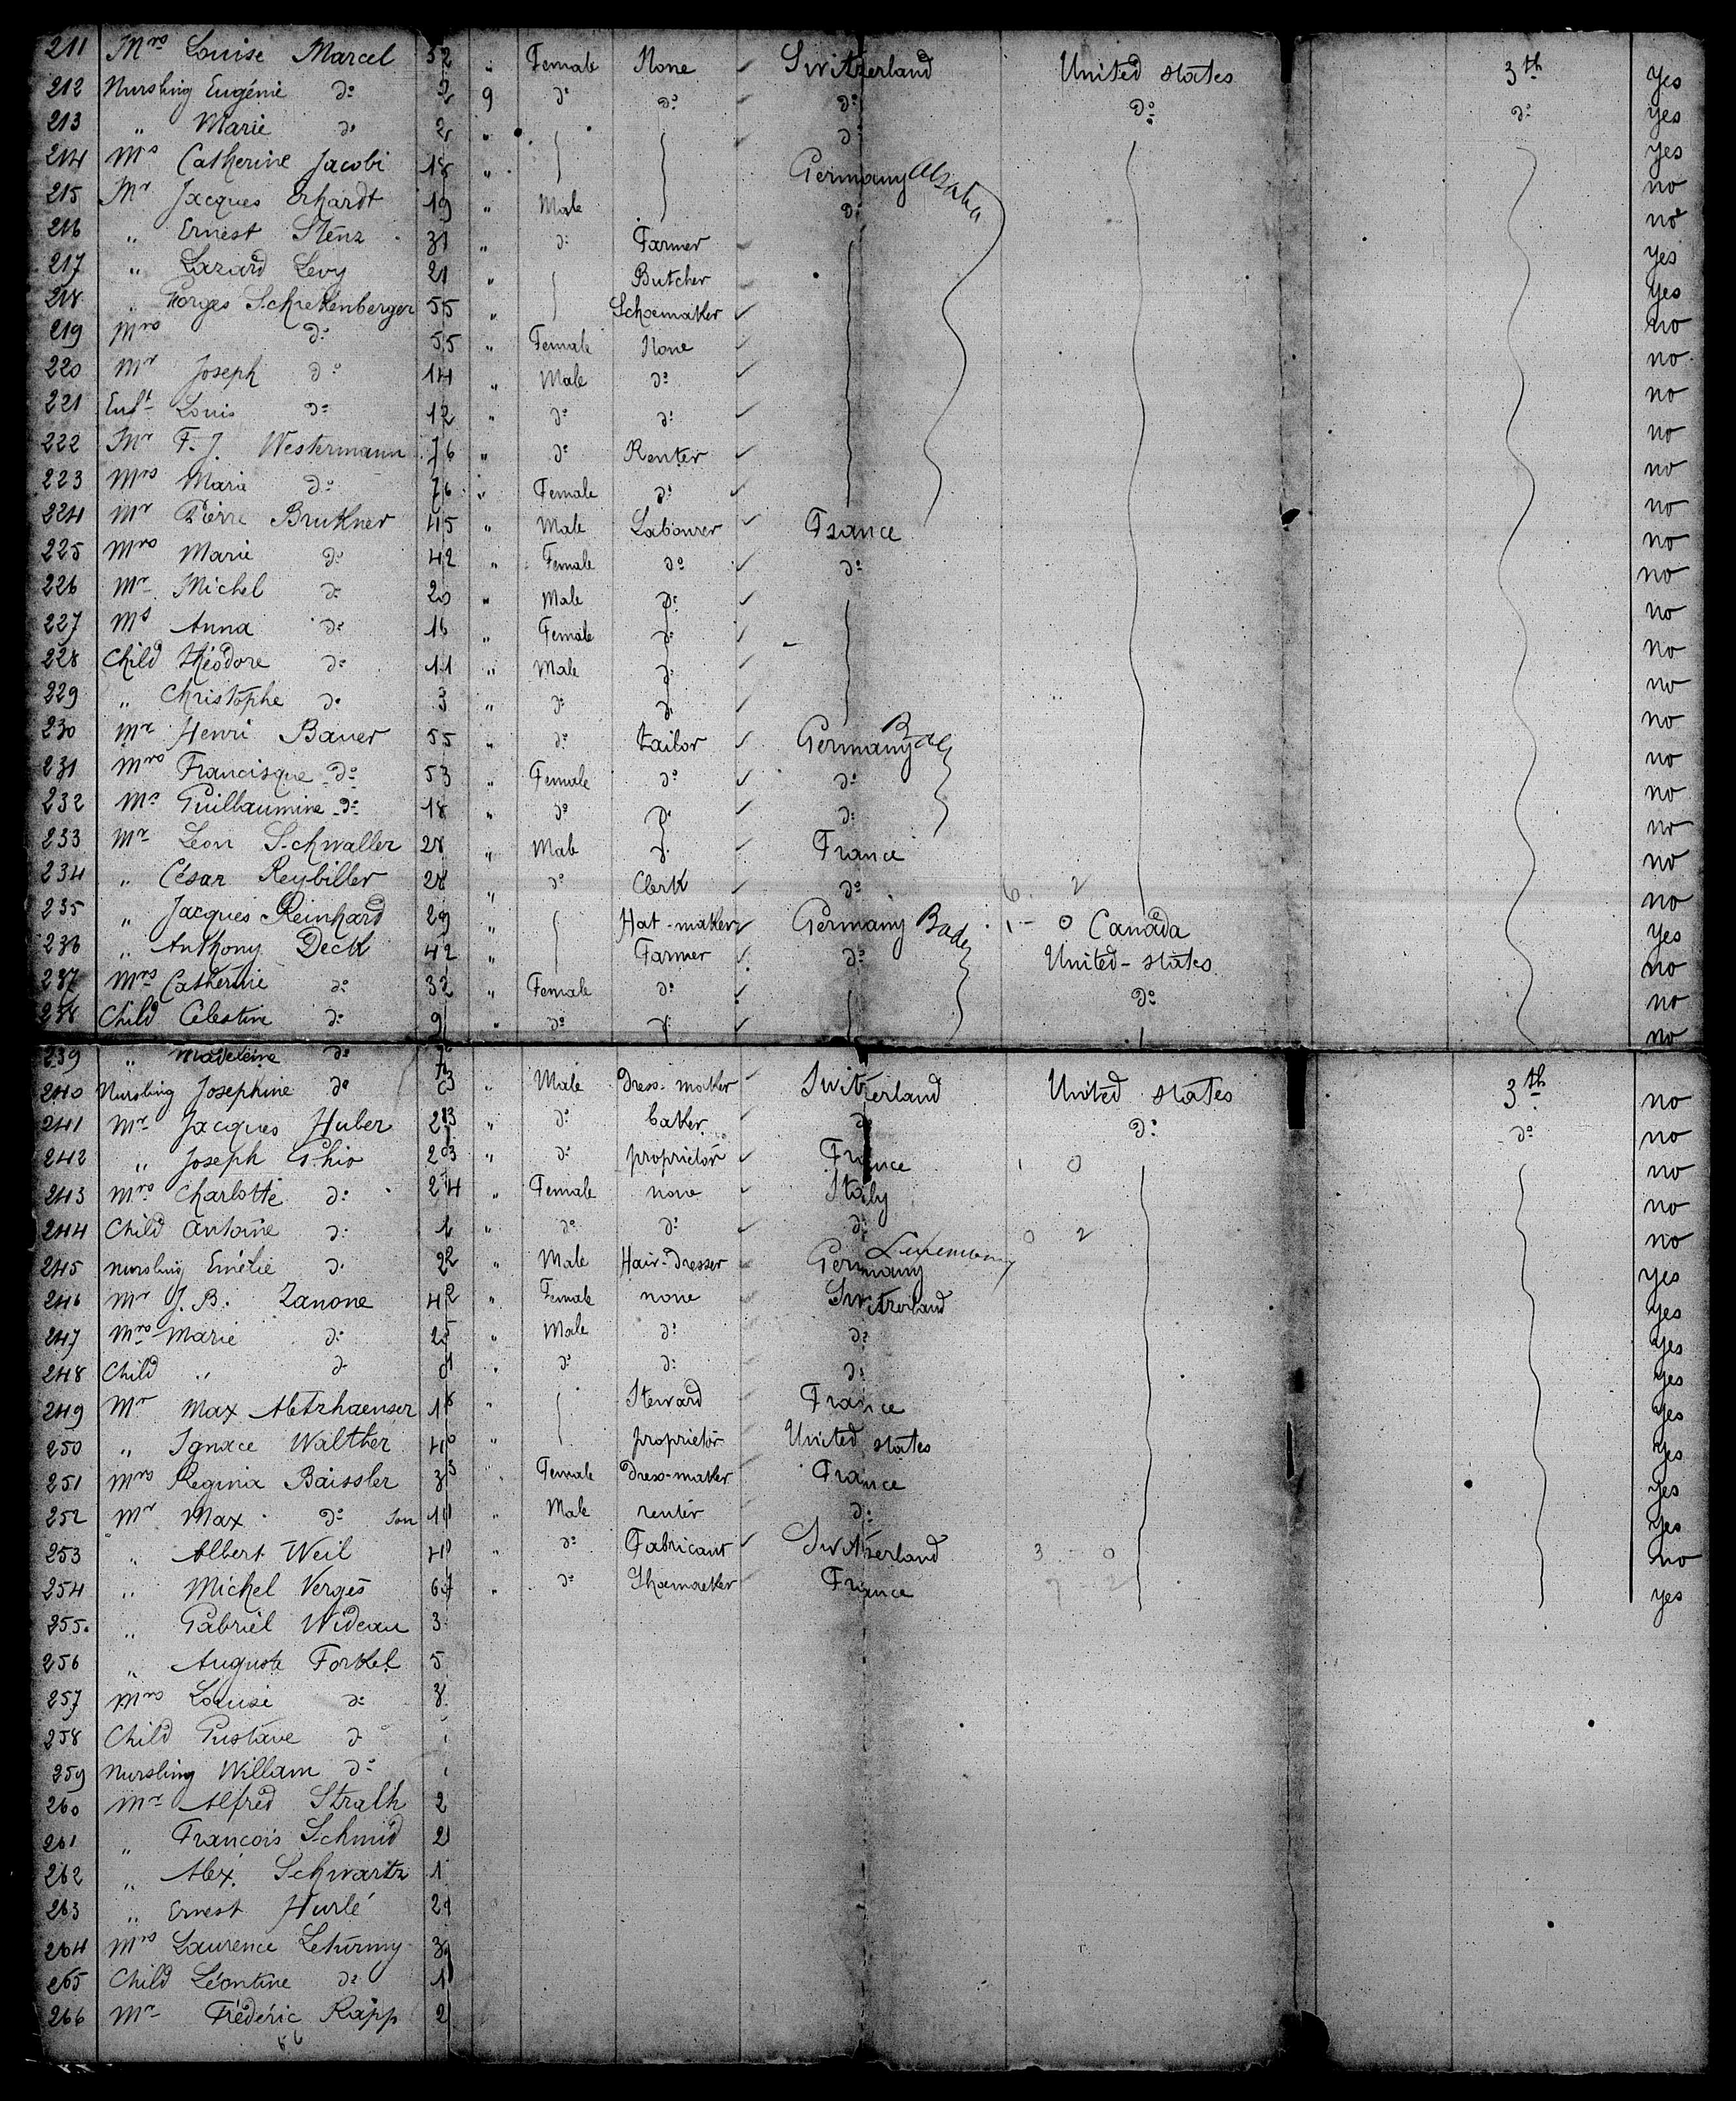 211 Mrs Louise Marcel 52 " Female None ✓ Switzerland United states 3th yes
212 Nursling Eugénie do 2 9 do do ✓ do do do yes
213 " Marie do 2 " ✓ do yes
214 Ms Catherine Jacobi 18 " Germany Alsatia no
215 Mr Jacques Erhardt 19 " Male do no
216 " Ernest Stenz 31 " do Farmer yes
217 " Lazard Levy 21 " Butcher yes
218 " Georges Schrekenberger 55 " Schoemaker ✓ no
219 Mrs do 55 " Female None ✓ no
220 Mr Joseph do 14 " Male do ✓ no
221 Enft Louis do 12 " do do ✓ no
222 Mr F. J. Westermann 76 " do Renter ✓ no
223 Mrs Marie do 76 " Female do ✓ no
224 Mr Pierre Brukner 45 " Male Labourer ✓ France no
225 Mrs Marie do 42 " Female do ✓ do no
226 Mr Michel do 20 " Male do ✓ no
227 Ms Anna do 16 " Female do ✓ no
228 Child Théodore do 11 " Male do ✓ no
229 " Christophe do 3 " do do ✓ no
230 Mr Henri Bauer 55 " do tailor ✓ Germany no
231 Mrs Francisque do 53 " Female do ✓ do no
232 Ms Guillaumine do 18 " do do ✓ do no
233 Mr Leon Schwaller 28 " Male do ✓ France no
234 " César Reybiller 28 " do Clerk ✓ do 6 2 no
235 " Jacques Reinhard 29 " Hat-maker ✓ Germany Baden 1 - 0 Canada yes
236 " Anthony Deck 42 " Farmer ✓ do United-states no
237 Mrs Catherine do 32 " Female do ✓ do no
238 Child Célestine do 9 " do do ✓ no
239 " Madeleine do
240 Nursling Josephine do " Male Dress-maker ✓ Switzerland United states 3th no
241 Mr Jacques Huber " do baker do do do no
242 " Joseph Ghio " do proprietor ✓ France 1 0 no
243 Mrs Charlotte do 24 " Female none ✓ Italy no
244 Child Antoine do " do do ✓ do 0 2 no
245 Nursling Emélie do 22 " Male Hair-Dresser Germany Luxemburg yes
246 Mr J. B. Zanone 42 " Female none Switzerland yes
247 Mrs Marie do 25 " Male do do yes
248 Child " do " do do do yes
249 Mr Max 18 " Steward France yes
250 " Ignace Walther 40 " proprietor United states yes
251 Mrs Regina Baissler " Female Dress-maker France yes
252 Mr Max do Son " Male renter do yes
253 " Albert Weil " do Fabricant ✓ Switzerland 3 - 0 no
254 " Michel Verges " do Shoemaker France 7 2 yes
255. " Gabriel Wideau 3
256 " Auguste Forkel 5
257 Mrs Louise do 3
258 Child Gustave do
259 Nursling William do
260 Mr Alfred Stralh 2
261 " François Schmid 2
262 " Alex. Schwartz 1
263 " Ernest Hurlé 2
264 Mrs Laurence Leturmy 3
265 Child Léontine do 1
266 Mr Fréderic Rapp 2
56